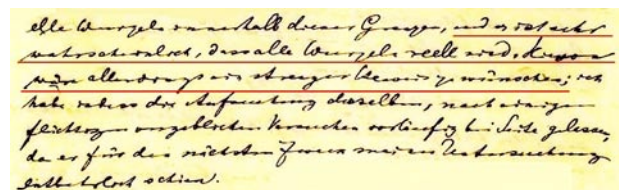 elle Wurzeln innerhalb dieser Grenzen, und es ist sehr
wahrscheinlich, dass alle Wurzeln reell sind. Hievon
wäre allerdings ein strenger Beweis zu wünschen; ich
habe indess die Aufsuchung desselben, nach einigen
flüchtigen vergeblichen Versuchen vorläufig bei Seite gelassen,
da er für den nächsten Zweck meiner Untersuchung
entbehrlich schien.